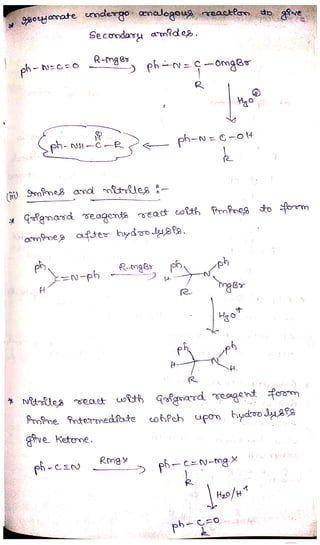 * Isocyanate undergo analogous reaction to give
Secondary amides.
ph-N=C=O R-mgBr ph-N=C-OmgBr
R
H₃O⊕
ph-NH-C-R ph-N=C-OH
O R
(iii) Imines and nitriles :-
* Grignard reagents react with Imines to form
amines after hydrolysis.
ph R-mgBr ph ph
=N-ph H N
H R mgBr
H₃O⁺
ph ph
H N
R H
* Nitriles react with Grignard reagent form
Imine Intermediate which upon hydrolysis
give Ketone.
ph-C≡N Rmgx ph-C=N-mgx
R
H₂O/H⁺
ph-C=O
R